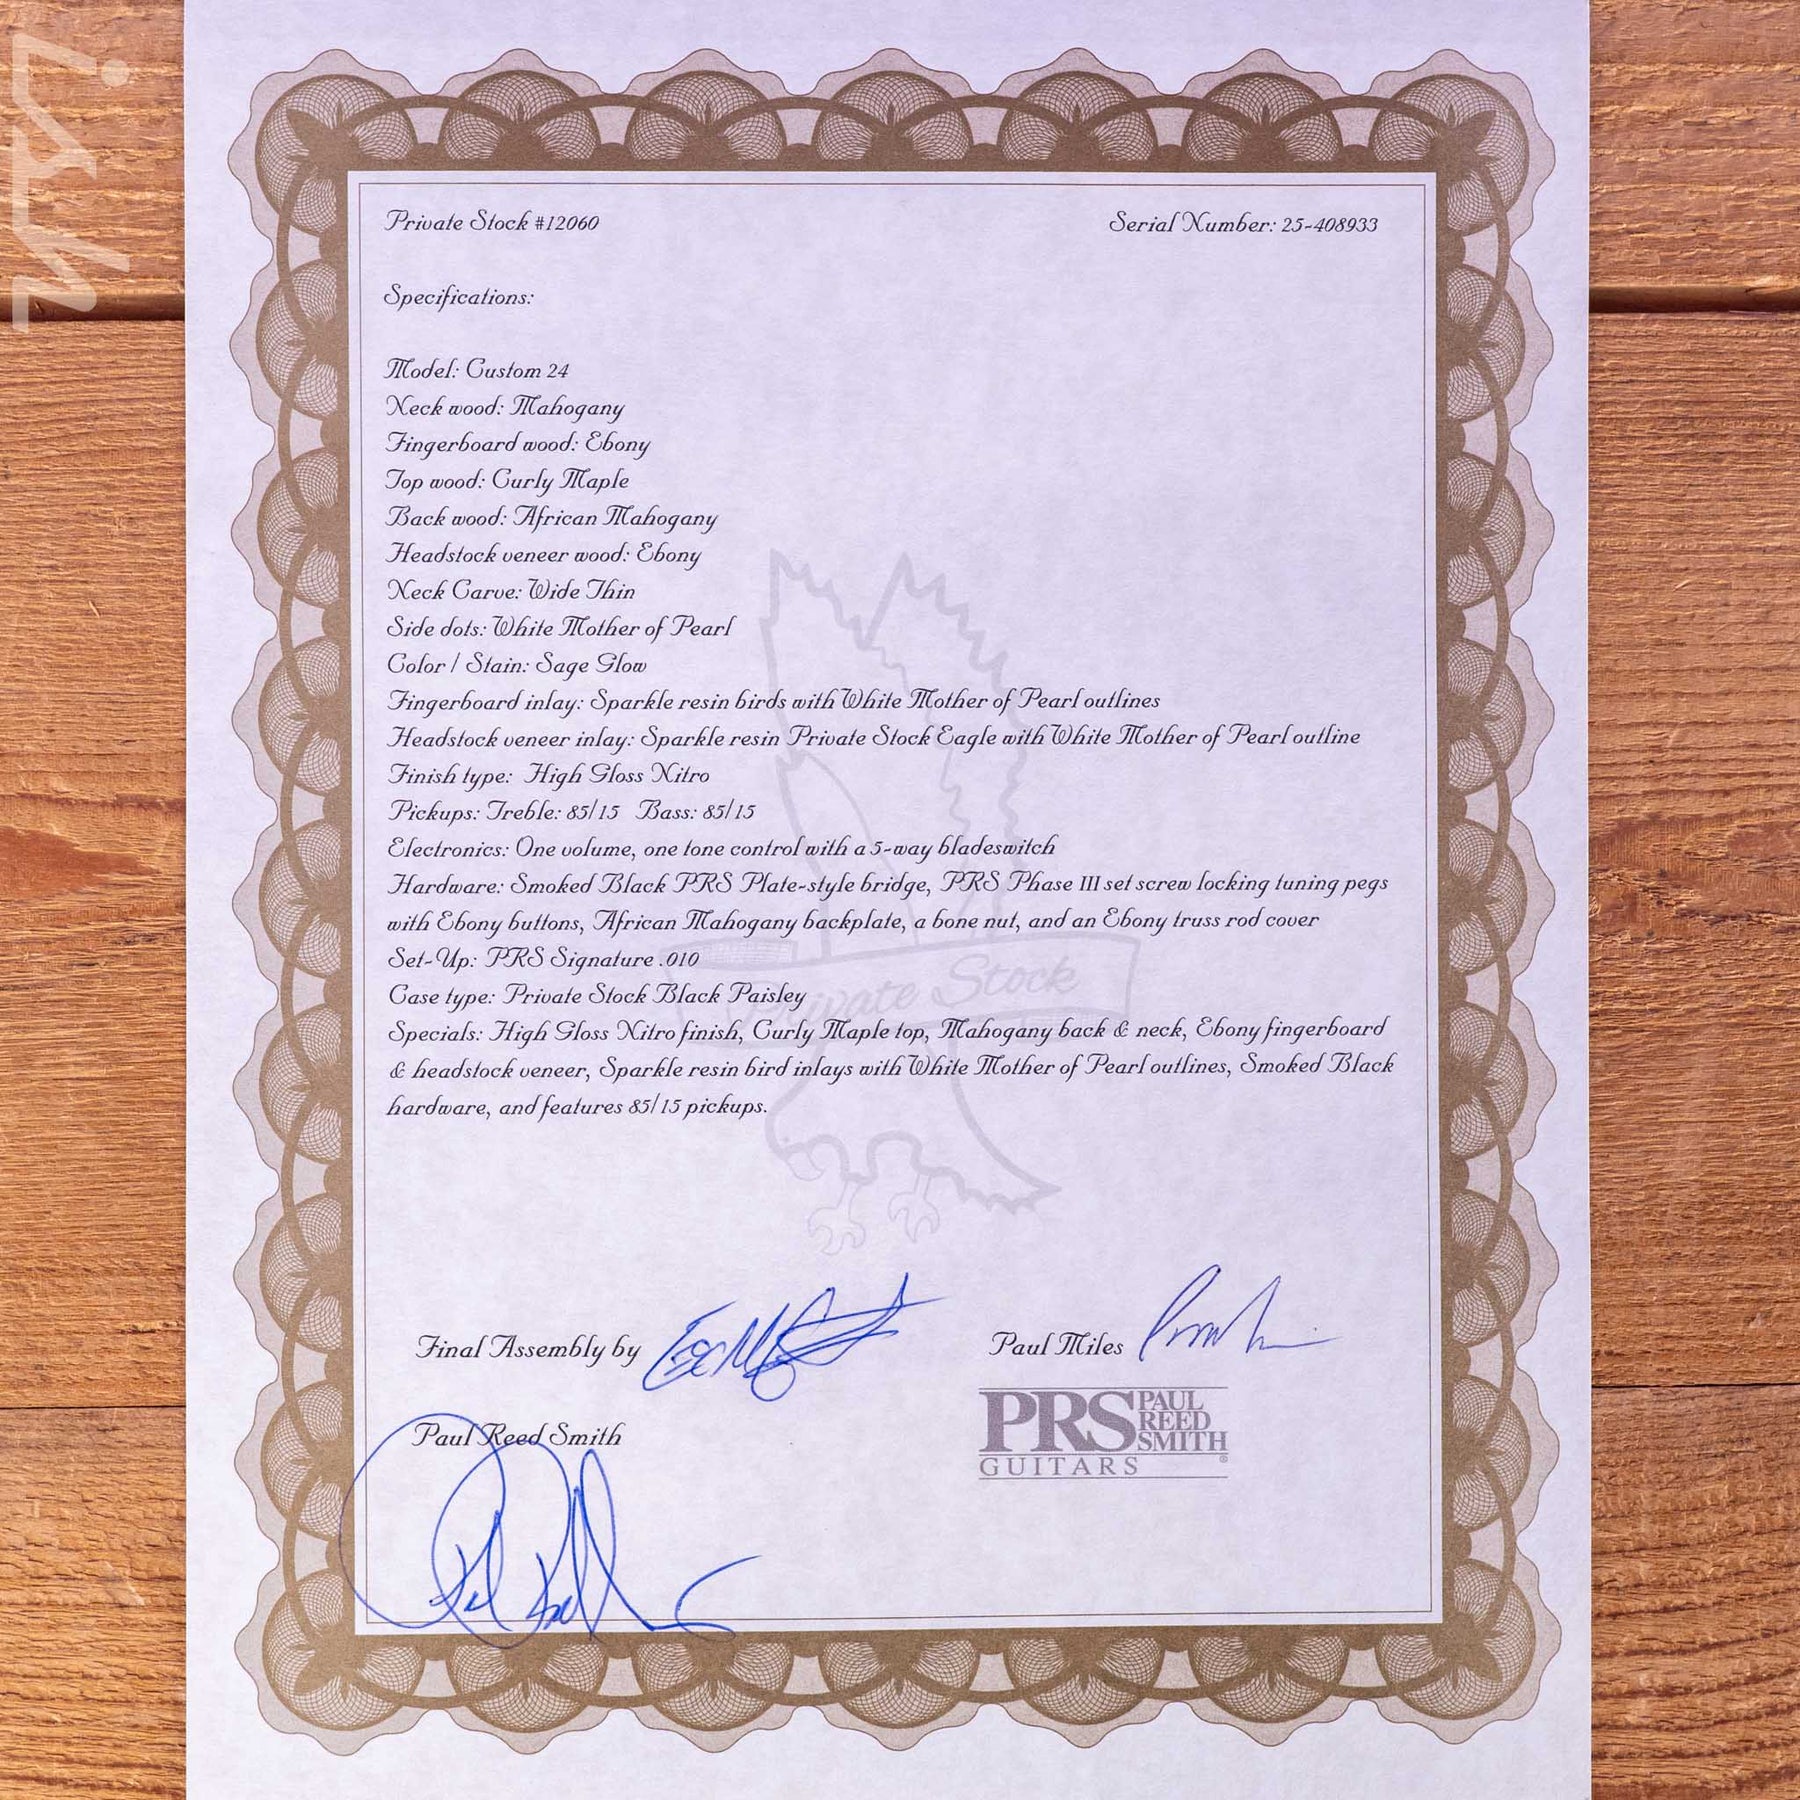 Private Stock #12060
Serial Number: 25-408933
Specifications:
Model: Custom 24
Neck wood: Mahogany
Fingerboard wood: Ebony
Top wood: Curly Maple
Back wood: African Mahogany
Headstock veneer wood: Ebony
Neck Carve: Wide Thin
Side dots: White Mother of Pearl
Color / Stain: Sage Glow
Fingerboard inlay: Sparkle resin birds with White Mother of Pearl outlines
Headstock veneer inlay: Sparkle resin Private Stock Eagle with White Mother of Pearl outline
Finish type: High Gloss Nitro
Pickups: Treble: 85/15 Bass: 85/15
Electronics: One volume, one tone control with a 5-way bladeswitch
Hardware: Smoked Black PRS Plate-style bridge, PRS Phase III set screw locking tuning pegs
with Ebony buttons, African Mahogany backplate, a bone nut, and an Ebony truss rod cover
Set-Up: PRS Signature .010
Case type: Private Stock Black Paisley
Private Stock
Specials: High Gloss Nitro finish, Curly Maple top, Mahogany back & neck, Ebony fingerboard
& headstock veneer, Sparkle resin bird inlays with White Mother of Pearl outlines, Smoked Black
hardware, and features 85/15 pickups.
Final Assembly by
Paul Miles
Paul Reed Smith
PRS PAUL
REED
SMITH®
GUITARS